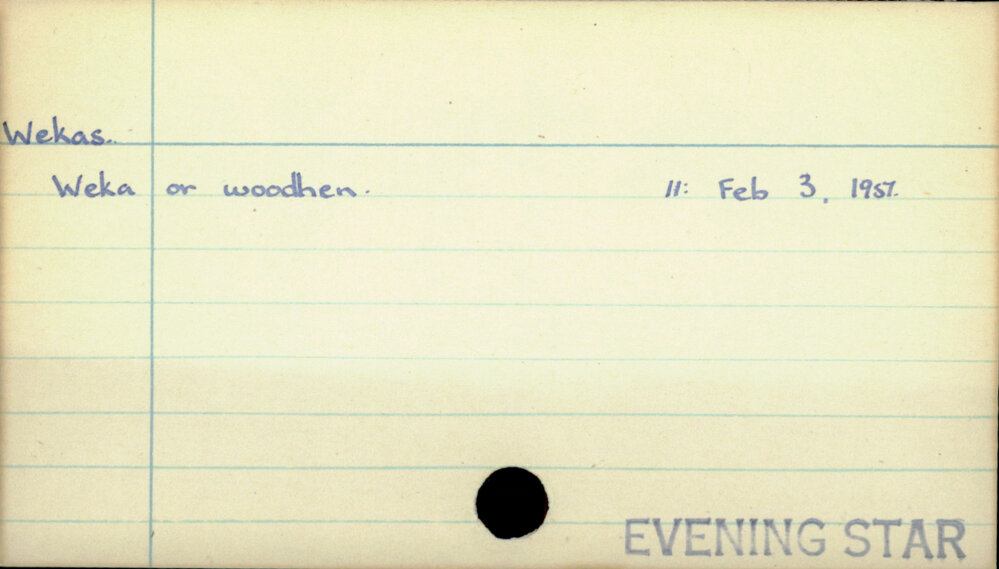 Wekas.
Weka or woodhen. 11: Feb 3, 1957.
EVENING STAR